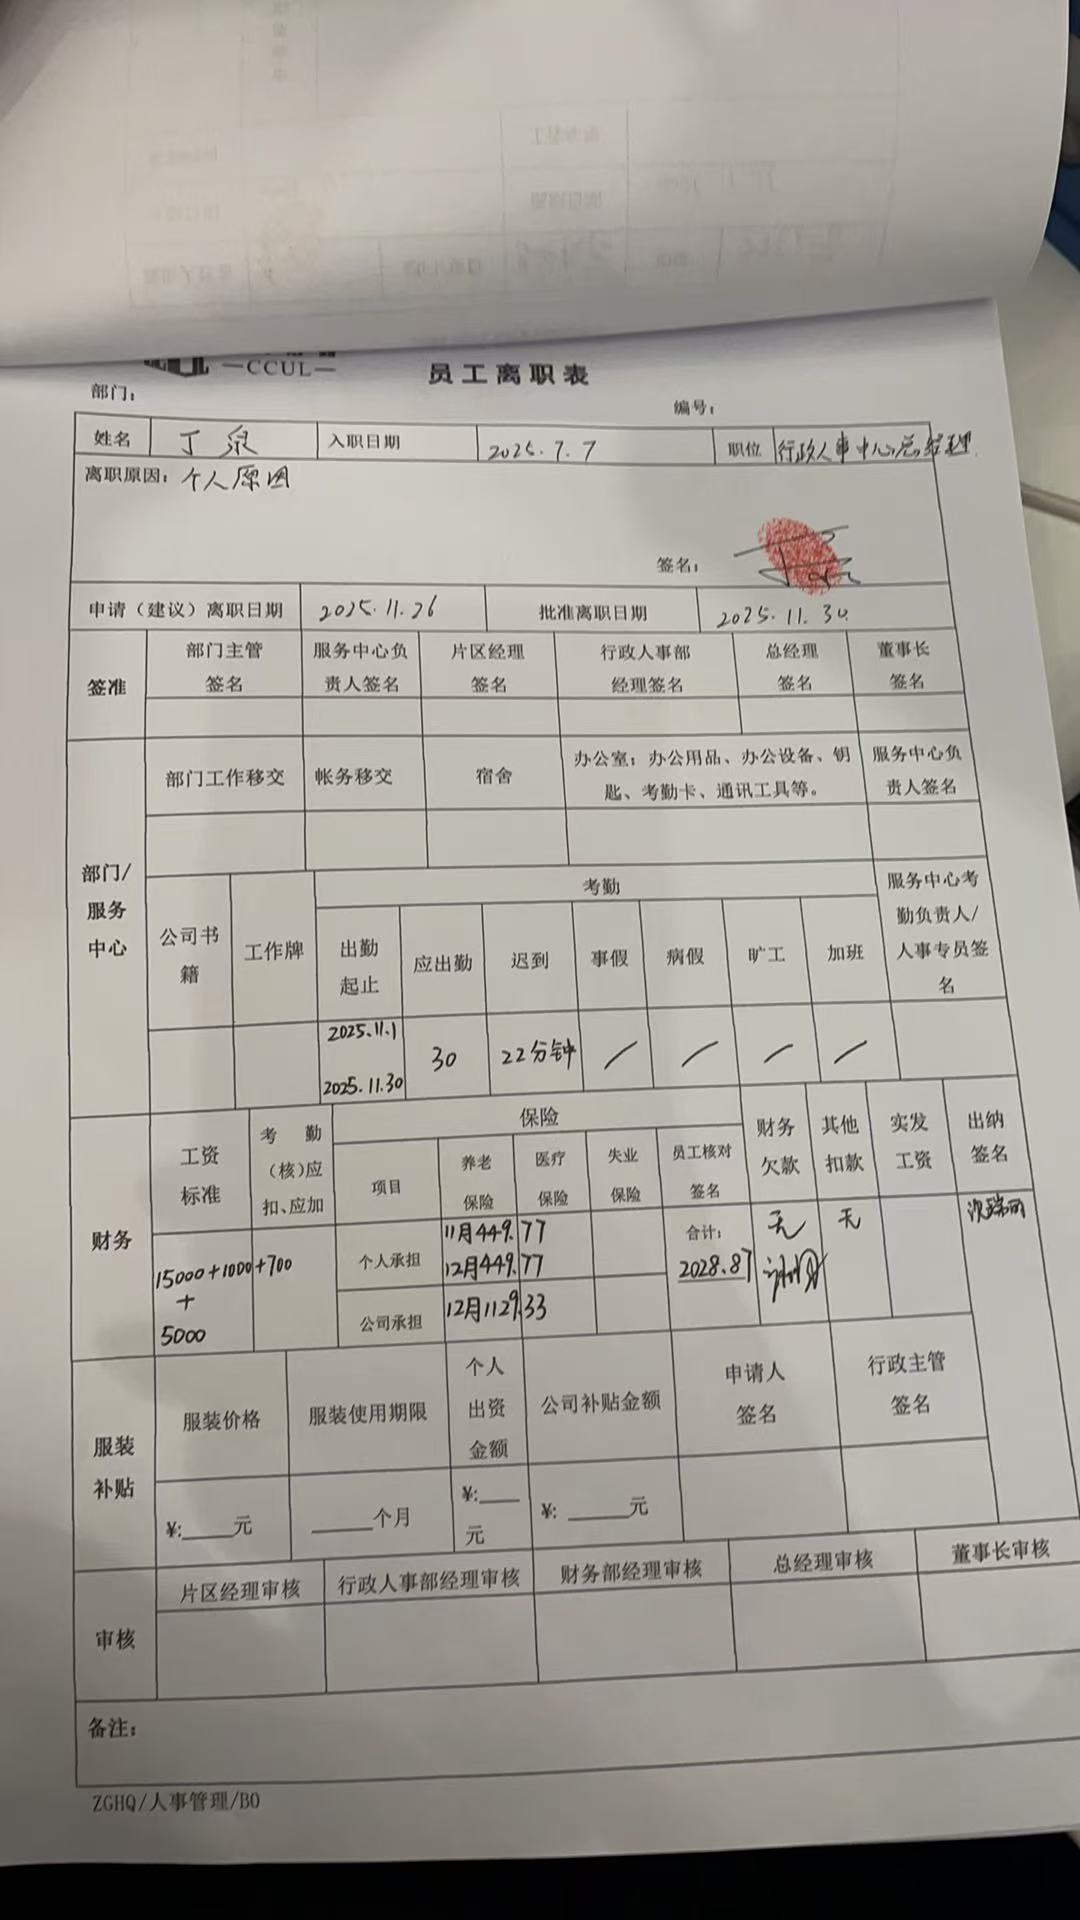 —CCUL—
员工离职表
部门:
编号:
姓名 丁泉 入职日期 2025.7.7 职位 行政人事中心总经理
离职原因: 个人原因
签名:
申请（建议）离职日期 2025.11.26 批准离职日期 2025.11.30
签准 部门主管签名 服务中心负责人签名 片区经理签名 行政人事部经理签名 总经理签名 董事长签名
部门/服务中心
部门工作移交 帐务移交 宿舍 办公室：办公用品、办公设备、钥匙、考勤卡、通讯工具等。 服务中心负责人签名
公司书籍 工作牌 考勤 服务中心考勤负责人/人事专员签名
出勤起止 应出勤 迟到 事假 病假 旷工 加班
2025.11.1
2025.11.30
30 22分钟 / / / /
财务
工资标准 考勤（核）应扣、应加 保险 财务欠款 其他扣款 实发工资 出纳签名
项目 养老保险 医疗保险 失业保险 员工核对签名
15000+1000+700
+
5000
个人承担 11月449.77
12月449.77
公司承担 12月1129.33
合计:
2028.87
无 无
服装补贴
服装价格 服装使用期限 个人出资金额 公司补贴金额 申请人签名 行政主管签名
¥:____元 ____个月 ¥:____元 ¥:____元
审核
片区经理审核 行政人事部经理审核 财务部经理审核 总经理审核 董事长审核
备注:
ZGHQ/人事管理/B0